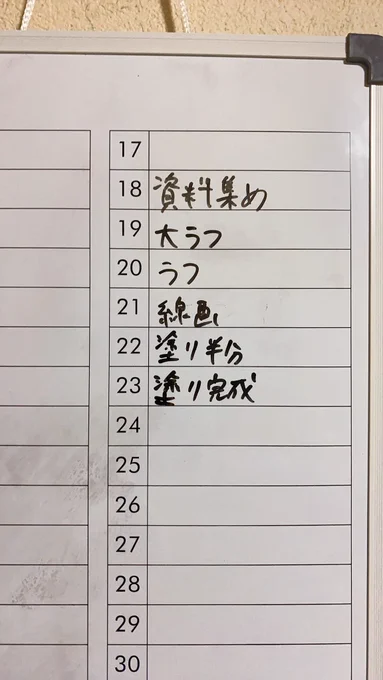 17
18 資料集め
19 大ラフ
20 ラフ
21 線画
22 塗り半分
23 塗り完成
24
25
26
27
28
29
30